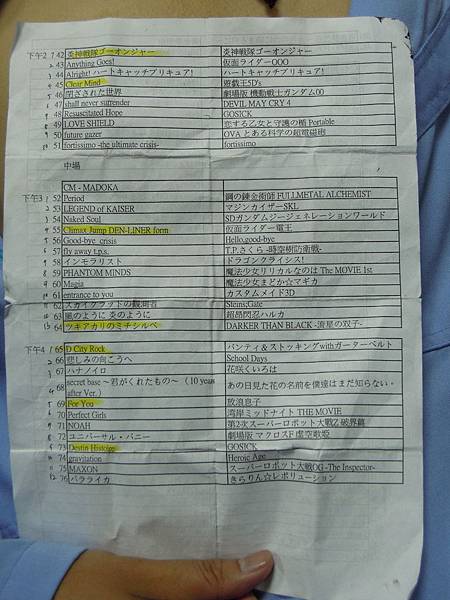 下午2 1 42 炎神戦隊ゴーオンジャー 炎神戦隊ゴーオンジャー
2 43 Anything Goes! 仮面ライダーOOO
3 44 Alright! ハートキャッチプリキュア! ハートキャッチプリキュア!
4 45 Clear Mind 遊戯王5D's
5 46 閉ざされた世界 劇場版 機動戦士ガンダム00
6 47 shall never surrender DEVIL MAY CRY 4
7 48 Resuscitated Hope GOSICK
8 49 LOVE SHIELD 恋する乙女と守護の楯 Portable
9 50 future gazer OVA とある科学の超電磁砲
10 51 fortissimo -the ultimate crisis- fortissimo
中場
CM - MADOKA
下午3 1 52 Period 鋼の錬金術師 FULLMETAL ALCHEMIST
2 53 LEGEND of KAISER マジンカイザーSKL
3 54 Naked Soul SDガンダムジージェネレーションワールド
4 55 Climax Jump DEN-LINER form 仮面ライダー電王
5 56 Good-bye crisis Hello,good-bye
6 57 fly away t.p.s. T.P.さくら -時空樹防衛戦-
7 58 インモラリスト ドラゴンクライシス!
8 59 PHANTOM MINDS 魔法少女リリカルなのは The MOVIE 1st
9 60 Magia 魔法少女まどか☆マギカ
10 61 entrance to you カスタムメイド3D
11 62 スカイクラッドの観測者 Steins;Gate
12 63 風のように 炎のように 超昂閃忍ハルカ
13 64 ツキアカリのミチシルベ DARKER THAN BLACK -流星の双子-
下午4 1 65 D City Rock パンティ＆ストッキングwithガーターベルト
2 66 悲しみの向こうへ School Days
3 67 ハナノイロ 花咲くいろは
4 68 secret base ～君がくれたもの～ (10 years after Ver.) あの日見た花の名前を僕達はまだ知らない。
5 69 For You 放浪息子
6 70 Perfect Girls 湾岸ミッドナイト THE MOVIE
7 71 NOAH 第2次スーパーロボット大戦Z 破界篇
8 72 ユニバーサル・バニー 劇場版 マクロスF 虚空歌姫
9 73 Destin Histoire GOSICK
10 74 gravitation Heroic Age
11 75 MAXON スーパーロボット大戦OG -The Inspector-
12 76 バラライカ きらりん☆レボリューション